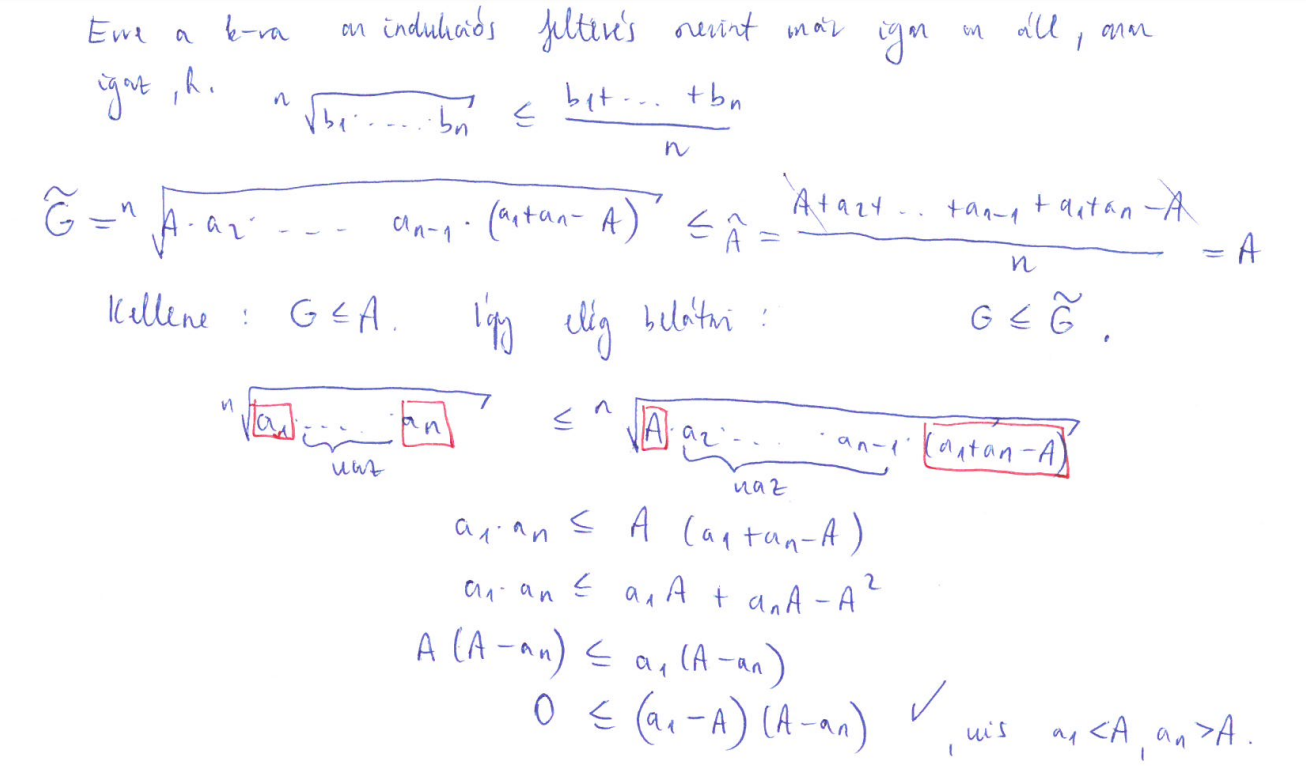 Erre a k-ra az indukciós feltevés szerint már igaz az áll, azaz
igaz, h. ⁿ√(b₁·....·bₙ) ≤ (b₁+...+bₙ)/n
G̃ = ⁿ√(A·a₂·.... aₙ₋₁·(a₁+aₙ-A)) ≤ Ã = (A+a₂+...+aₙ₋₁+a₁+aₙ-A)/n = A
Kellene : G ≤ A. Így elég belátni : G ≤ G̃.
ⁿ√(a₁·....·aₙ) ≤ ⁿ√(A·a₂·....·aₙ₋₁·(a₁+aₙ-A))
uaz uaz
a₁·aₙ ≤ A (a₁+aₙ-A)
a₁·aₙ ≤ a₁A + aₙA - A²
A (A-aₙ) ≤ a₁(A-aₙ)
0 ≤ (a₁-A)(A-aₙ) ✓, uis a₁<A, aₙ>A.